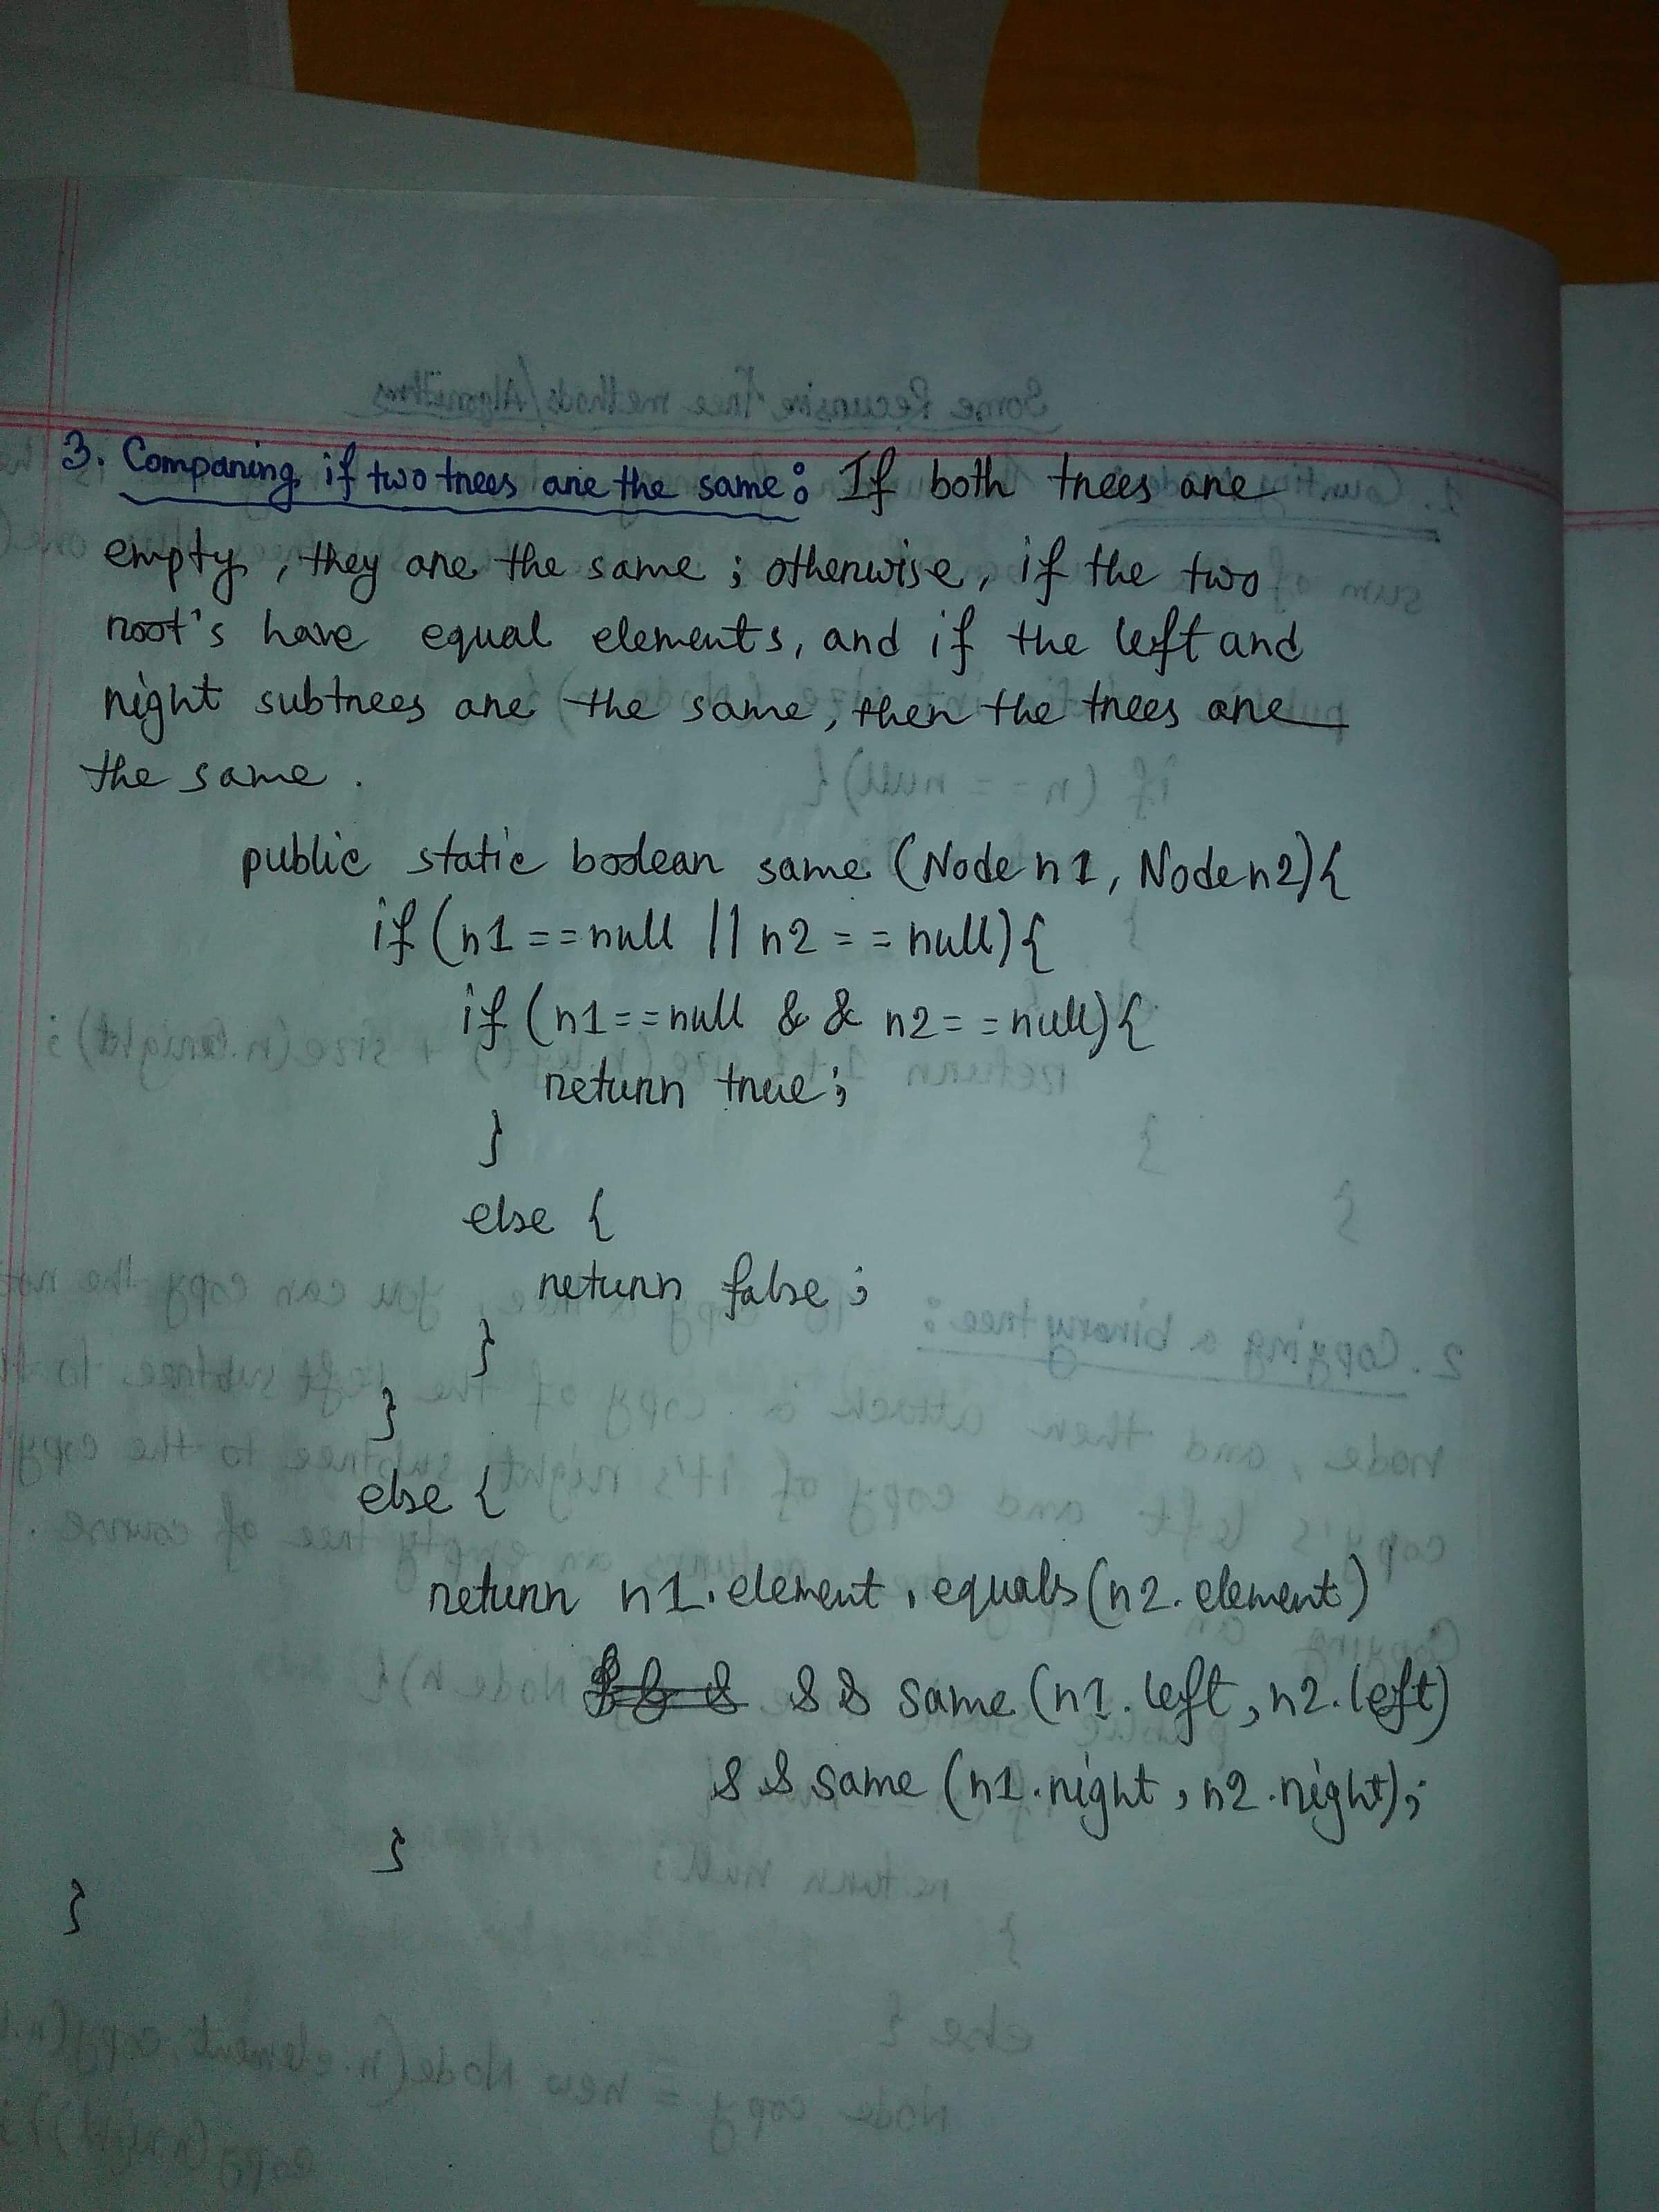 3. Comparing if two trees are the same: If both trees are
empty, they are the same; otherwise, if the two
root's have equal elements, and if the left and
right subtrees are the same, then the trees are
the same.
public static boolean same (Node n1, Node n2){
if (n1 == null || n2 == null){
if (n1 == null && n2 == null){
return true;
}
else {
return false;
}
}
else {
return n1.element.equals(n2.element)
&& same (n1.left, n2.left)
&& same (n1.right, n2.right);
}
}